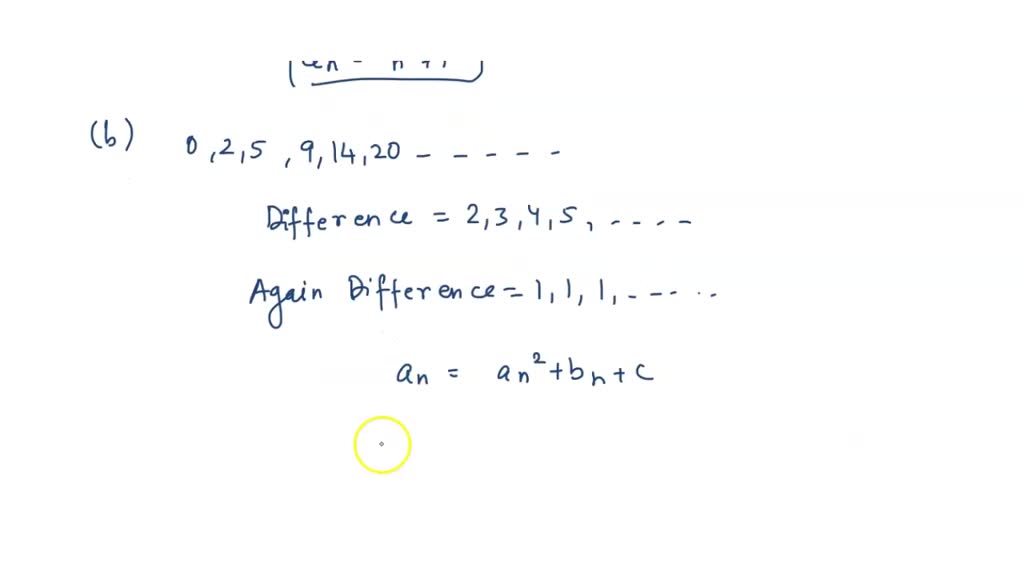 (b) 0, 2, 5, 9, 14, 20 - - - - -
Difference = 2, 3, 4, 5, - - - -
Again Difference = 1, 1, 1, - - - - -
aₙ = an² + bn + c